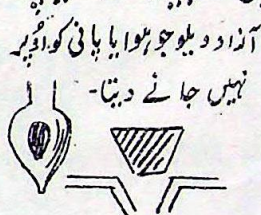 آزاد ویلو جو ہوا یا پانی کو اُوپر
نہیں جانے دیتا۔